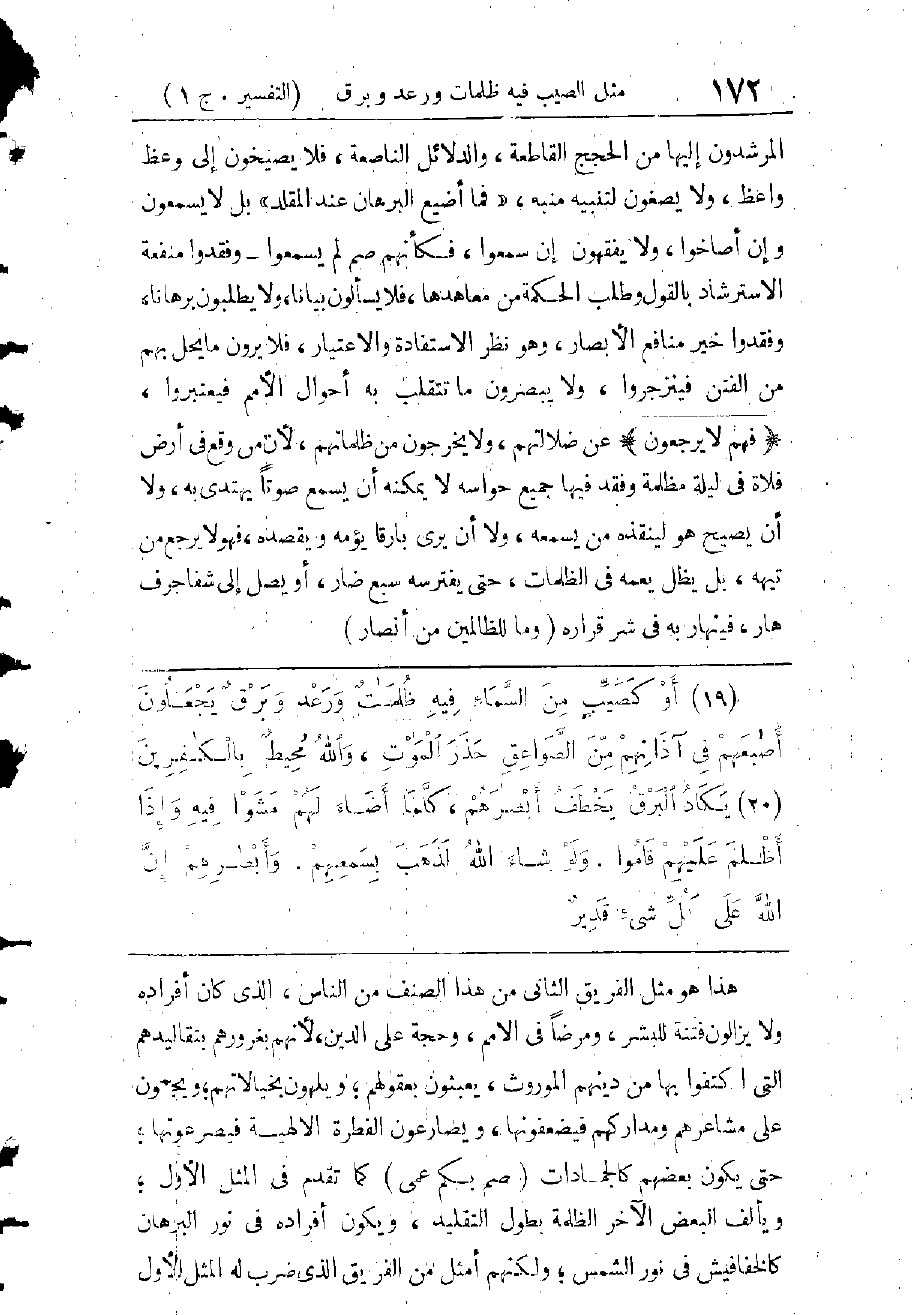 ١٧٢ مثل الصيب فيه ظلمات ورعد وبرق (التفسير . ج ١)
المرشدون إليها من الحجج القاطعة ، والدلائل الناصعة ، فلا يصيخون إلى وعظ
واعظ ، ولا يصغون لتنبيه منبه ، « فما أضيع البرهان عند المقلد» بل لا يسمعون
وإن أصاخوا ، ولا يفقهون إن سمعوا ، فكأنهم صم لم يسمعوا ــ وفقدوا منفعة
الاسترشاد بالقول وطلب الحكمة من معاهدها ، فلا يسألون بيانا، ولا يطلبون برهانا،
وفقدوا خير منافع الأبصار ، وهو نظر الاستفادة والاعتبار ، فلا يرون مايحل بهم
من الفتن فينزجروا ، ولا يبصرون ما تتقلب به أحوال الأمم فيعتبروا ،
﴿ فهم لا يرجعون ﴾ عن ضلالتهم ، ولا يخرجون من ظلماتهم ، لأن من وقع فى أرض
فلاة فى ليلة مظلمة وفقد فيها جميع حواسه لا يمكنه أن يسمع صوتاً يهتدى به ، ولا
أن يصيح هو لينقذه من يسمعه ، ولا أن يرى بارقا يؤمه ويقصده ، فهو لا يرجع من
تيهه ، بل يظل يعمه فى الظلمات ، حتى يفترسه سبع ضار ، أو يصل إلى شفا جرف
هار ، فينهار به فى شر قراره ( وما للظالمين من أنصار )
(١٩) أَوْ كَصَيِّبٍ مِنَ السَّمَاءِ فِيهِ ظُلُمَـٰتٌ وَرَعْدٌ وَبَرْقٌ يَجْعَلُونَ
أَصَـٰبِعَهُمْ فِي آذَانِهِمْ مِّنَ الصَّوَاعِقِ حَذَرَ الْمَوْتِ ، وَاللهُ مُحِيطٌ بِالْكَـٰفِرِينَ
(٢٠) يَكَادُ الْبَرْقُ يَخْطَفُ أَبْصَـٰرَهُمْ ، كُلَّمَا أَضَاءَ لَهُمْ مَشَوْا فِيهِ وَإِذَا
أَظْلَمَ عَلَيْهِمْ قَامُوا . وَلَوْ شَاءَ اللهُ لَذَهَبَ بِسَمْعِهِمْ . وَأَبْصَـٰرِهِمْ إِنَّ
اللهَ عَلَى كُلِّ شَىْءٍ قَدِيرٌ
هذا هو مثل الفريق الثانى من هذا الصنف من الناس ، الذى كان أفراده
ولا يزالون فتنة للبشر ، ومرضاً فى الامم ، وحجة على الدين، لأنهم بغرورهم بتقاليدهم
التى اكتفوا بها من دينهم الموروث ، يعبثون بعقولهم ؛ ويلهون بخيالاتهم ؛ ويجمون
على مشاعرهم ومداركهم فيضعفونها ، ويصارعون الفطرة الالهية فيصرعونها ؛
حتى يكون بعضهم كالجمادات ( صم بكم عمى ) كما تقدم فى المثل الأول ؛
ويألف البعض الآخر الظلمة بطول التقليد ، ويكون أفراده فى نور البرهان
كالخفافيش فى نور الشمس ؛ ولكنهم أمثل من الفريق الذى ضرب له المثل الأول